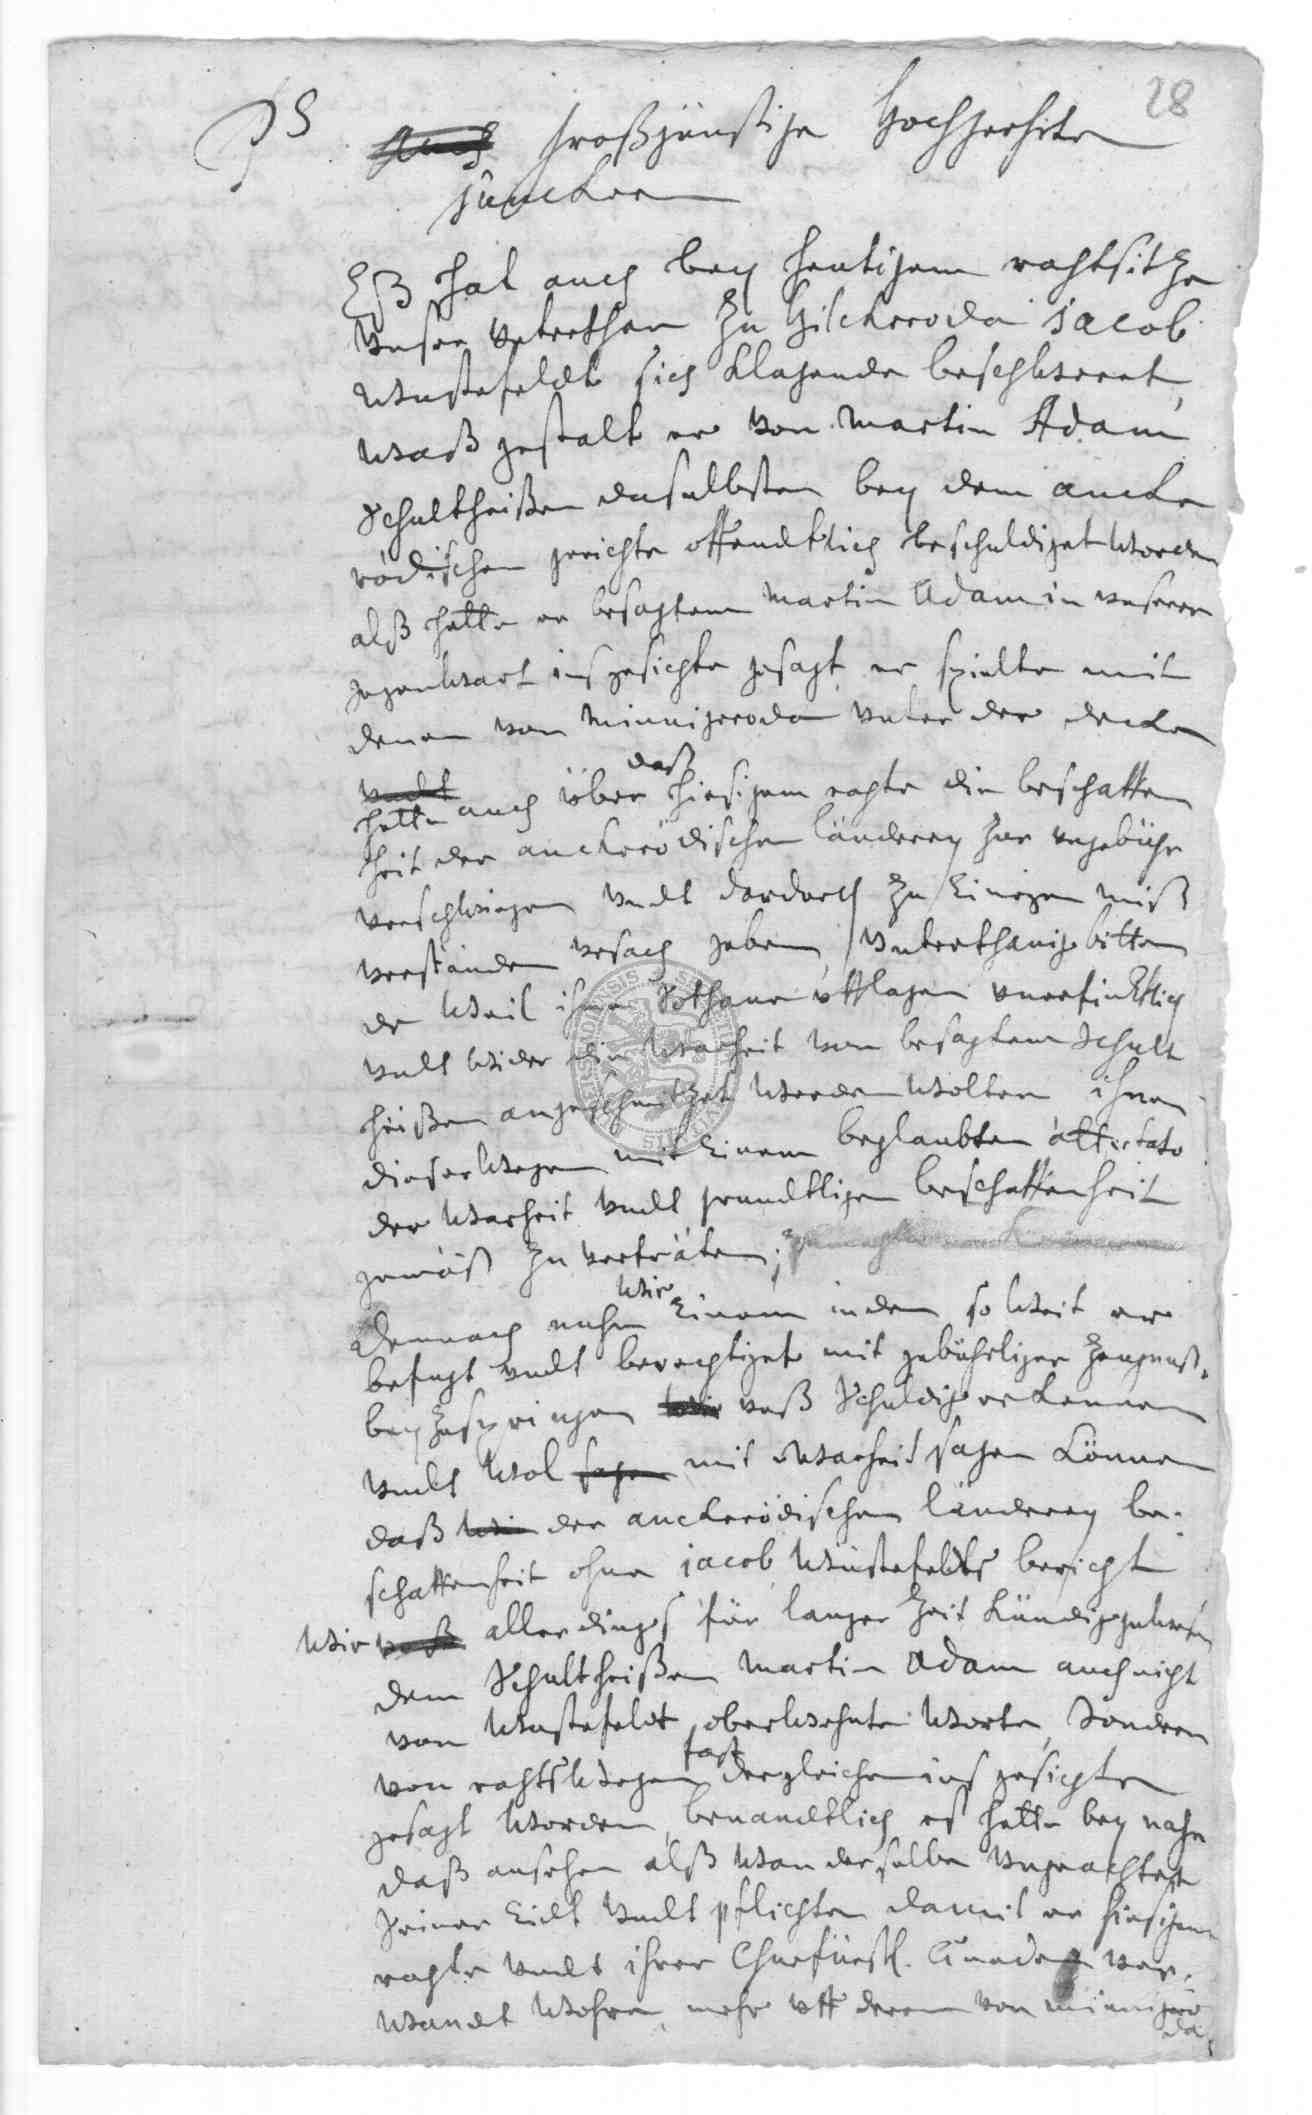 28
PS
Auch Großgünstige Hochgeehrte
Juncker
Eß hat auch bey heutigem rahtsitze
Unser Unterthan zu Hilckeroda Jacob
Wustefeldt sich klagende beschweret,
waß gestalt er von Martin Adam
Schultheißen daselbsten bey dem ancke
rödischen gerichte offendtlich beschuldiget worden
alß hette er besagtem Martin Adam in unserer
gegenwart ins gesichte gesagt er spielte mit
denen von Minnigeroda unter der decke
undt
hette auch über daß hiesigem rahte die beschaffen
heit der anckerödischen länderey zur ungebühr
verschwiegen undt dardurch zu einigen miß
verstande ursach geben, Unterthänig bitten
de weil ihme sothane ufflagen unerfindtlich
undt wider die warheit von besagtem Schult
heißen angeschmitzet werden wolten ihme
dieserwegen mit einem beglaubten attestato
der warheit undt grundtlichen beschaffenheit
gemäß zu verträten;
Demnach nuhn wir einem ieden so weit er
befugt undt berechtiget mit gebührlicher Zeugnuß
beyzuspringen wir unß schuldig erkennen
undt wol sagen mit warheit sagen können
daß wir der anckerödischen länderey be-
schaffenheit ohne Jacob Wüstefeldts bericht
wir unß allerdings für langer Zeit kundig gewesen
dem Schultheißen Martin Adam auch nicht
von Wustefeldt oberwehnte worte, sondern
von rahtswegen fast dergleichen ins gesichte
gesagt worden, benandtlich es hette bey nahe
daß ansehen alß wan derselbe ungeachtet
seiner Eidt undt pflichten damit er hiesigem
rahte undt ihrer Churfürstl. Gnaden ver-
wandt wehre, mehr uff deren von Minnigero
da